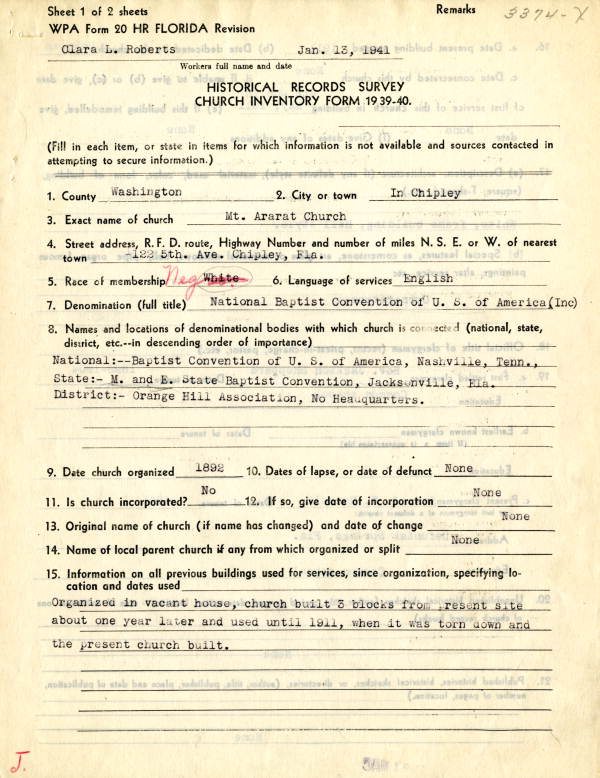 Sheet 1 of 2 sheets
Remarks 3374-X
WPA Form 20 HR FLORIDA Revision
Clara L. Roberts Jan. 13, 1941
Workers full name and date
HISTORICAL RECORDS SURVEY
CHURCH INVENTORY FORM 1939-40.
(Fill in each item, or state in items for which information is not available and sources contacted in
attempting to secure information.)
1. County Washington 2. City or town In Chipley
3. Exact name of church Mt. Ararat Church
4. Street address, R. F. D. route, Highway Number and number of miles N. S. E. or W. of nearest
town 122 5th. Ave. Chipley, Fla.
5. Race of membership Negro White 6. Language of services English
7. Denomination (full title) National Baptist Convention of U. S. of America(Inc)
8. Names and locations of denominational bodies with which church is connected (national, state,
district, etc.--in descending order of importance)
National:--Baptist Convention of U. S. of America, Nashville, Tenn.,
State:- M. and E. State Baptist Convention, Jacksonville, Fla.
District:- Orange Hill Association, No Headquarters.
9. Date church organized 1892 10. Dates of lapse, or date of defunct None
11. Is church incorporated? No 12. If so, give date of incorporation None
13. Original name of church (if name has changed) and date of change None
14. Name of local parent church if any from which organized or split None
15. Information on all previous buildings used for services, since organization, specifying lo-
cation and dates used
Organized in vacant house, church built 3 blocks from present site
about one year later and used until 1911, when it was torn down and
the present church built.
J.